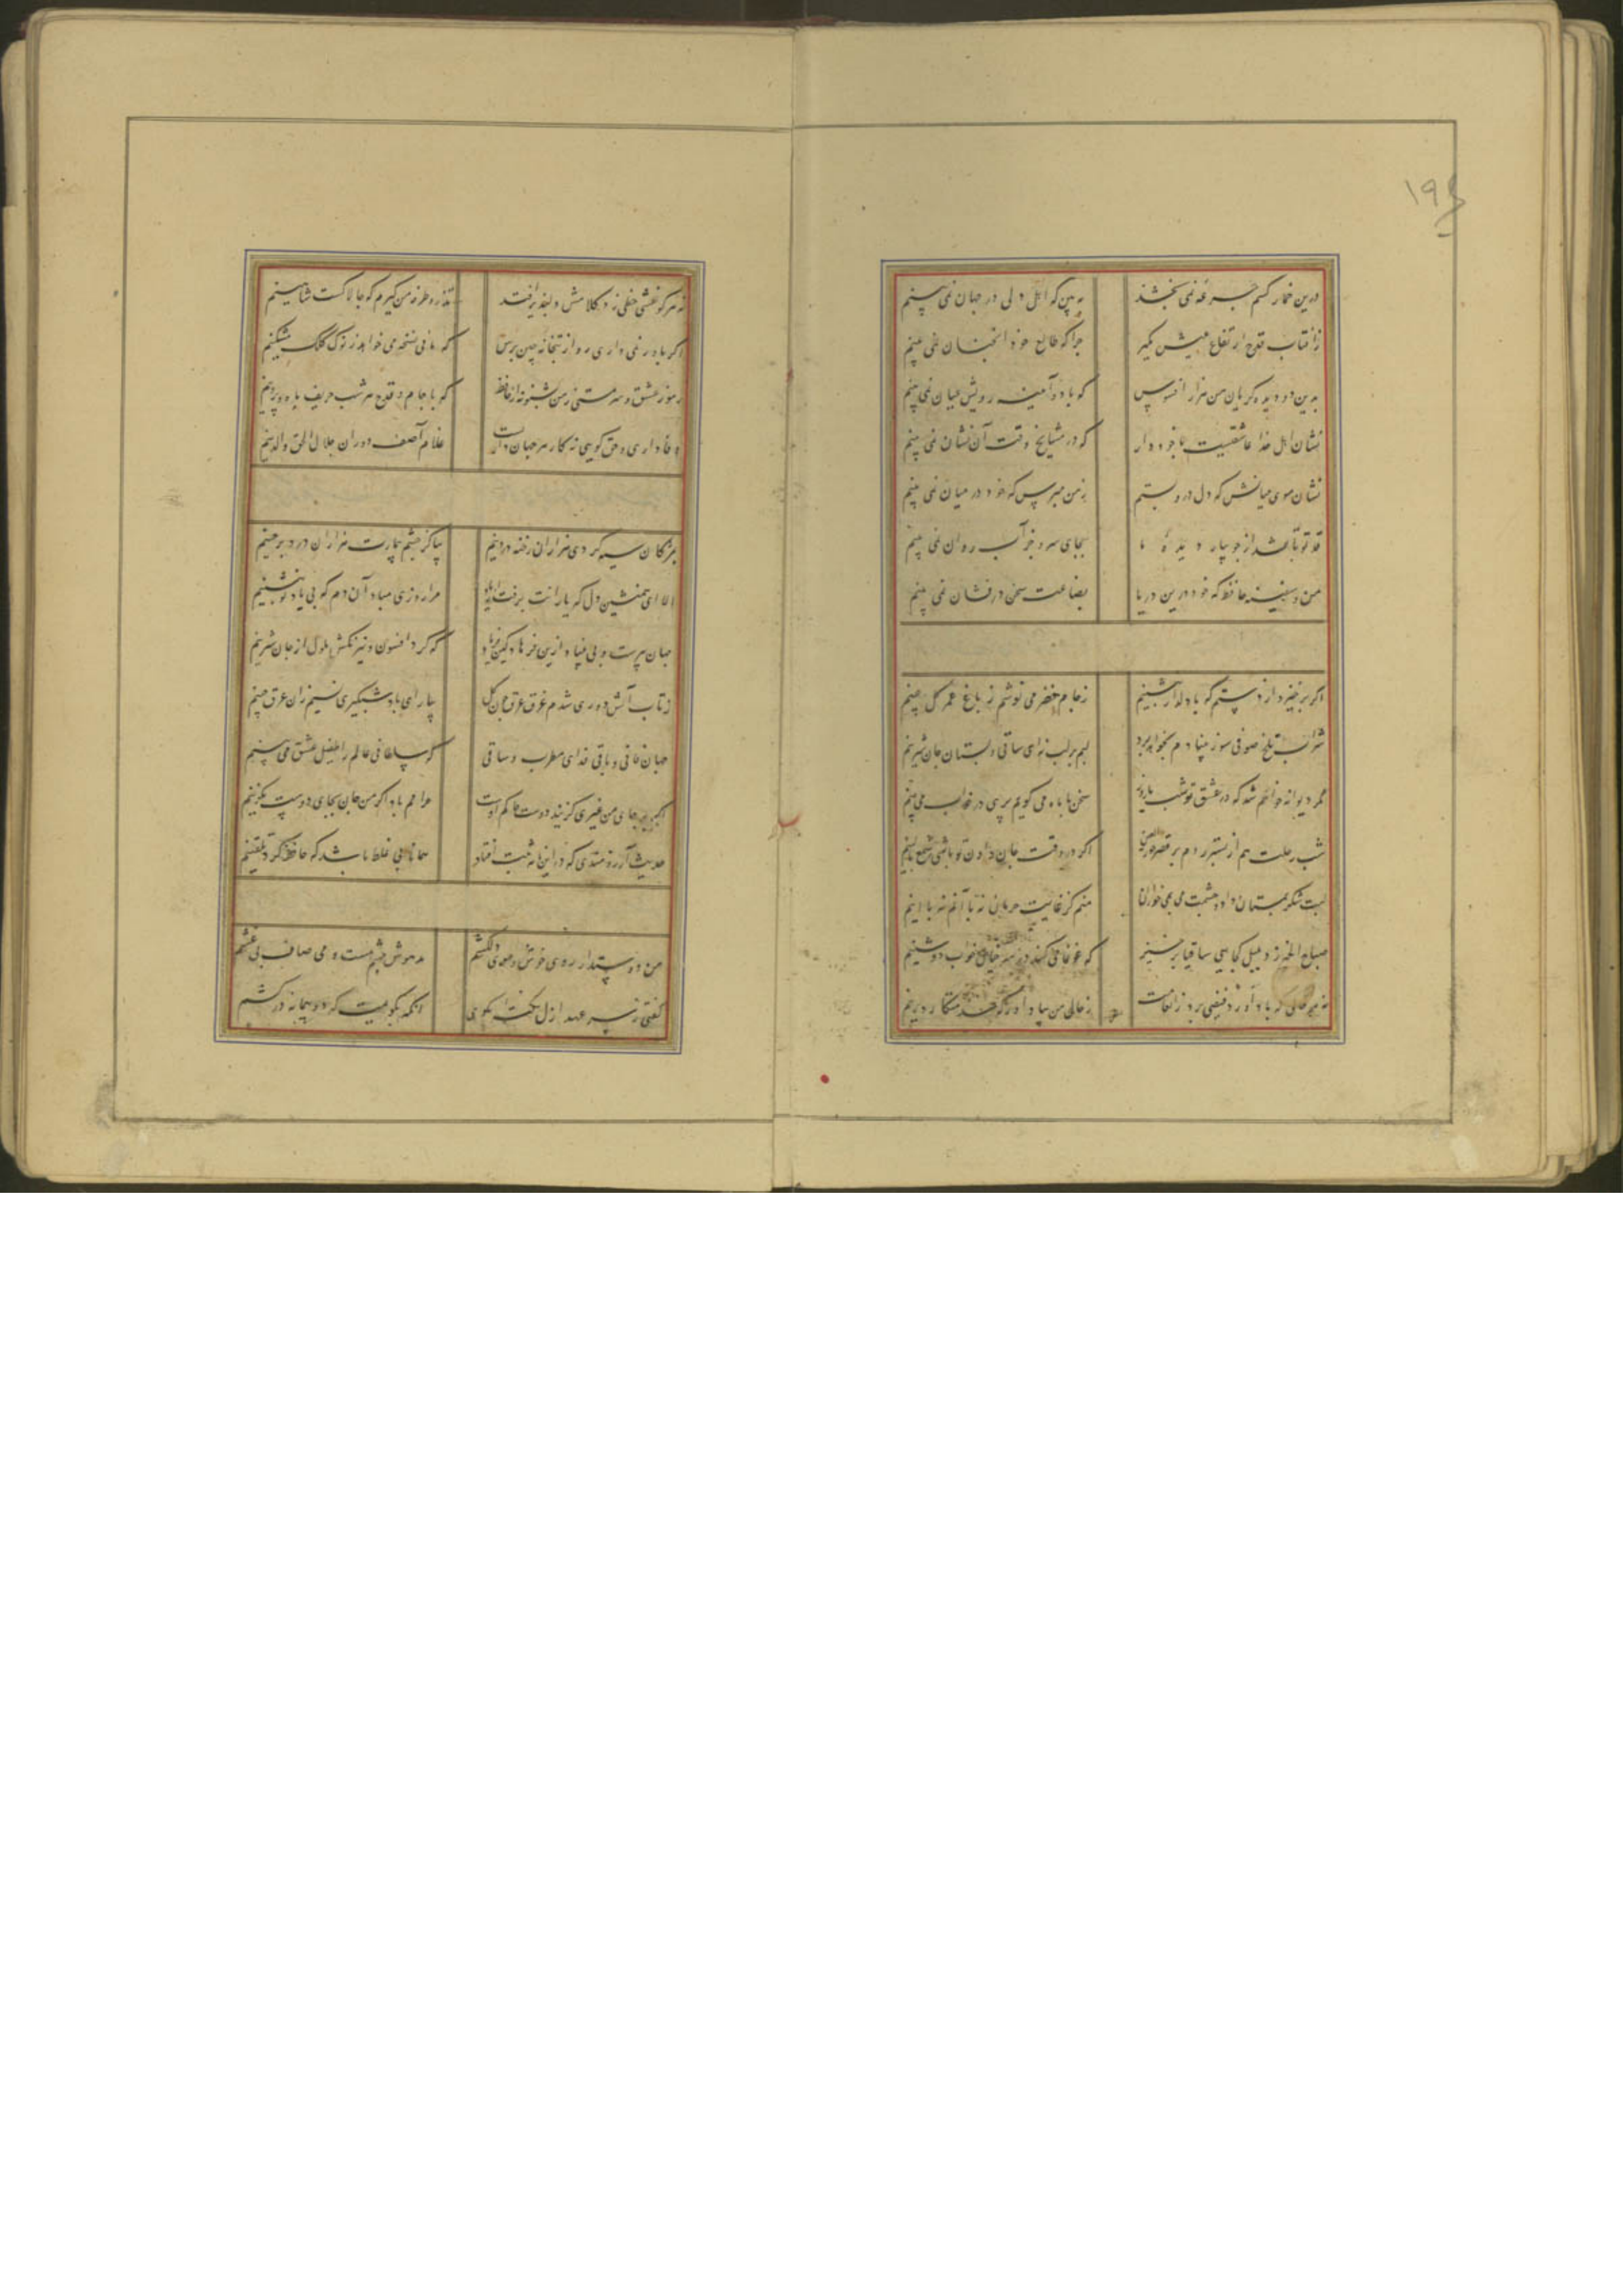 ۱۹۶
درین خمار کسم جرعهٔ نمی بخشد
به بین که اهل دلی در جهان نمی بینم
زآفتاب قدح ارتفاع عیش بگیر
چرا که طالع خود آنچنان نمی بینم
بدین دو دیده گریان من هزار افسوس
که با دو آینه رویش عیان نمی بینم
نشان اهل خدا عاشقیست با خود دار
که در مشایخ وقت آن نشان نمی بینم
نشان موی میانش که دل درو بستم
ز من مپرس که خود در میان نمی بینم
قد تو تا بشد از جویبار دیدهٔ ما
بجای سرو جز آب روان نمی بینم
من و سفینه حافظ که خود درین دریا
بضاعت سخن درفشان نمی بینم
اگر برخیزد از دستم که با دلدار بنشینم
زجام خضر می نوشم ز باغ عمر گل چینم
شراب تلخ صوفی سوز بنیادم بخواهد برد
لبم بر لب نه ای ساقی و بستان جان شیرینم
مگر دیوانه خواهم شد که در عشق تو شب تا روز
سخن با ماه می گویم پری در خواب می بینم
شب رحلت هم از بستر روم بر قصر حورالعین
اگر در وقت جان دادن تو باشی شمع بالینم
لبت شکر بمستان داد و چشمت می بمی خواران
منم کز غایت حرمان نه با آنم نه با اینم
صباح الخیر زد بلبل کجایی ساقیا برخیز
که غوغا می کند در سر خیال خواب دوشینم
نه هر خاکی که باد آورد فیضی برد زانعامت
ز حال من بیاد آور که خدمتکار دیرینم
نه هر کو نقشی نظمی زد کلامش دلپذیر افتد
تذرو طرفه من گیرم که چالاکست شاهینم
اگر باور نمی داری رو از بتخانه چین پرس
که مانی نسخه می خواهد ز نوک کلک مشکینم
رموز عشق و سرمستی ز من بشنو نه از حافظ
که با جام و قدح هر شب حریف ماه و پروینم
وفاداری و حق گویی نه کار هر جهان دارست
غلام آصف دوران جلال الحق والدینم
بمژگان سیه کردی هزاران رخنه در دینم
بیا کز چشم بیمارت هزاران درد برچینم
الا ای همنشین دل که یارانت برفت از یاد
مرا روزی مباد آن دم که بی یاد تو بنشینم
جهان پیرست و بی بنیاد ازین فرهاد کش فریاد
که کرد افسون و نیرنگش ملول از جان شیرینم
ز تاب آتش دوری شدم غرق عرق چون گل
بیار ای باد شبگیری نسیم زان عرق چینم
جهان فانی و باقی فدای مطرب و ساقی
که سلطانی عالم را طفیل عشق می بینم
اگر بر جای من غیری گزیند دوست حاکم اوست
حرامم باد اگر من جان بجای دوست بگزینم
حدیث آرزومندی که در این نامه ثبت افتاد
همانا بی غلط باشد که حافظ کرد تلقینم
من دوستدار روی خوش و موی دلکشم
مدهوش چشم مست و می صاف بی غشم
گفتی ز سر عهد ازل نکته‌ای بگوی
آنگه بگویمت که دو پیمانه درکشم